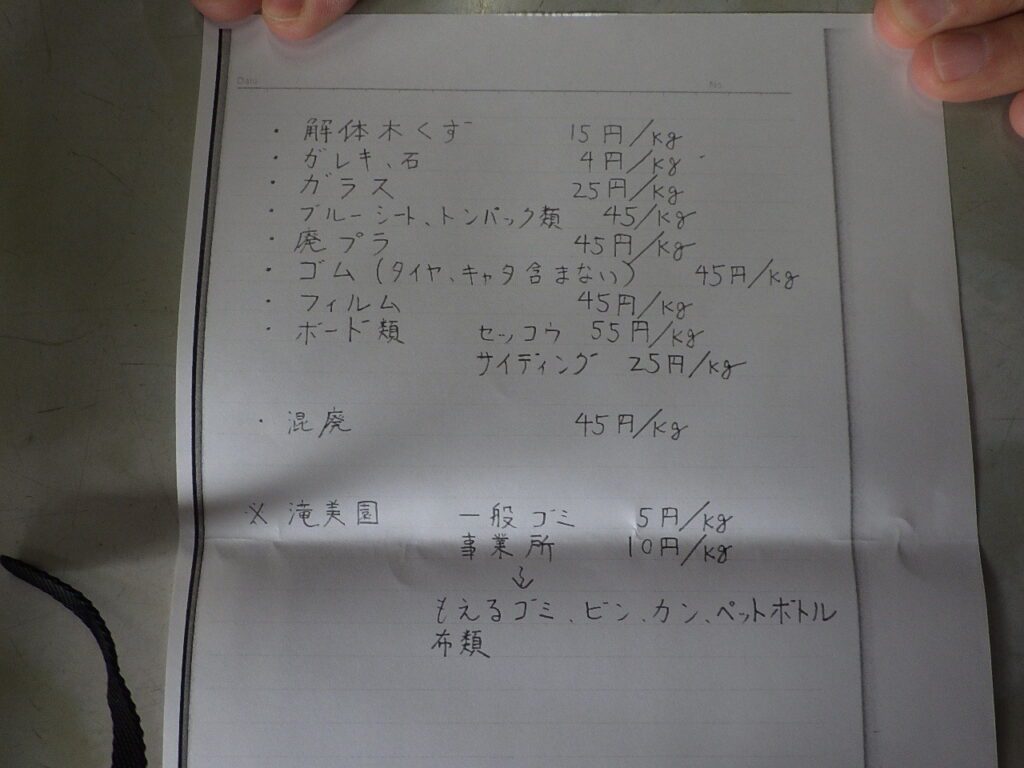 Date
No.
・解体木くず 15円/kg
・ガレキ、石 4円/kg
・ガラス 25円/kg
・ブルーシート、トンパック類 45/kg
・廃プラ 45円/kg
・ゴム(タイヤ、キャタ含まない) 45円/kg
・フィルム 45円/kg
・ボード類 セッコウ 55円/kg
サイディング 25円/kg
・混廃 45円/kg
※ 滝美園 一般ゴミ 5円/kg
事業所 10円/kg
↓
もえるゴミ、ビン、カン、ペットボトル
布類